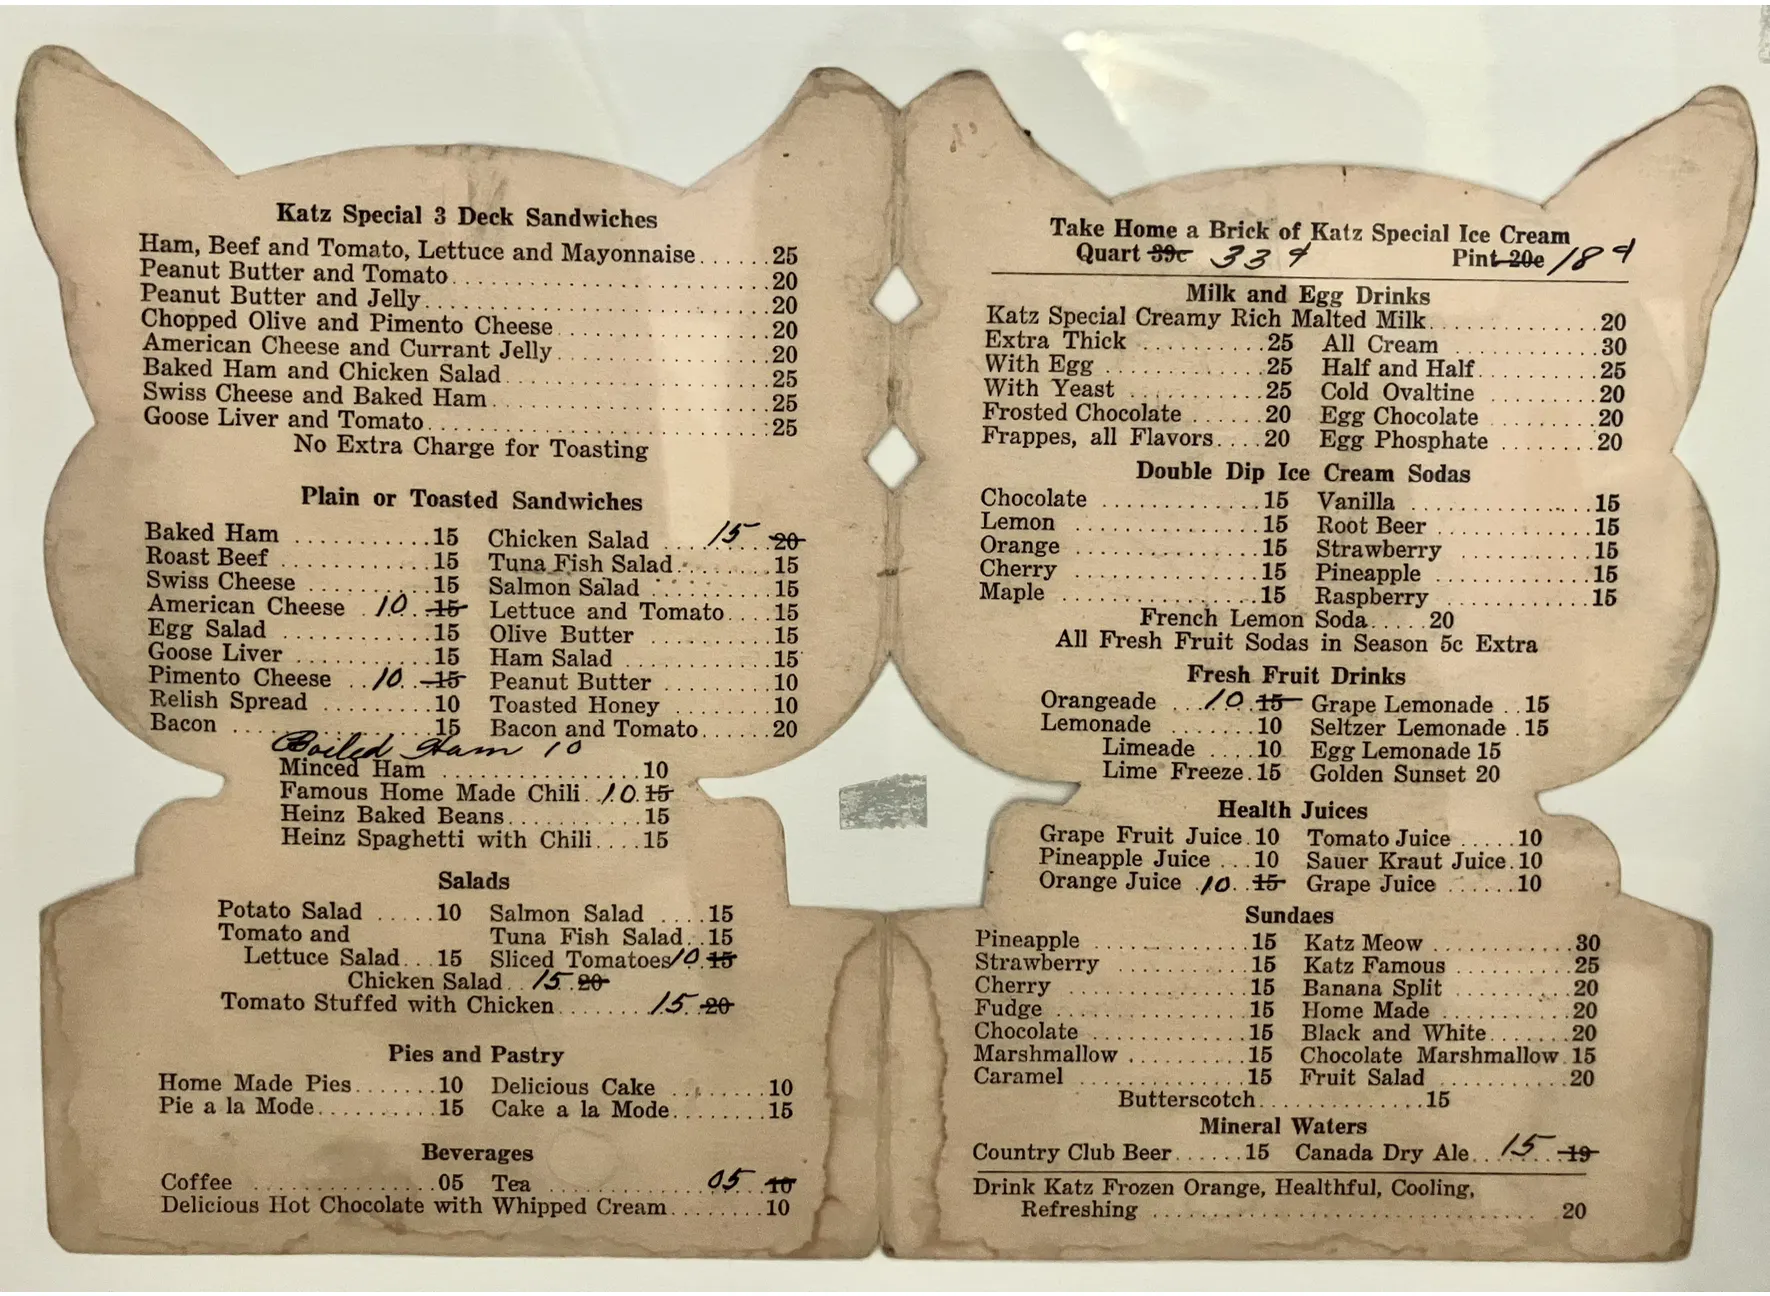 Katz Special 3 Deck Sandwiches
Ham, Beef and Tomato, Lettuce and Mayonnaise......25
Peanut Butter and Tomato..........................20
Peanut Butter and Jelly...........................20
Chopped Olive and Pimento Cheese..................20
American Cheese and Currant Jelly.................20
Baked Ham and Chicken Salad.......................25
Swiss Cheese and Baked Ham........................25
Goose Liver and Tomato............................25
No Extra Charge for Toasting
Plain or Toasted Sandwiches
Baked Ham ...........15 Chicken Salad ....15...20
Roast Beef ............15 Tuna Fish Salad.........15
Swiss Cheese ..........15 Salmon Salad ..........15
American Cheese .10..15 Lettuce and Tomato....15
Egg Salad ............15 Olive Butter ..........15
Goose Liver ...........15 Ham Salad ............15
Pimento Cheese ..10..15 Peanut Butter .........10
Relish Spread .........10 Toasted Honey ........10
Bacon ................15 Bacon and Tomato......20
Boiled Ham 10
Minced Ham ................10
Famous Home Made Chili..10.15
Heinz Baked Beans...........15
Heinz Spaghetti with Chili....15
Salads
Potato Salad .....10 Salmon Salad ....15
Tomato and Tuna Fish Salad..15
Lettuce Salad...15 Sliced Tomatoes 10.15
Chicken Salad..15.20
Tomato Stuffed with Chicken........15..20
Pies and Pastry
Home Made Pies.......10 Delicious Cake ........10
Pie a la Mode..........15 Cake a la Mode........15
Beverages
Coffee ...............05 Tea .............05..10
Delicious Hot Chocolate with Whipped Cream........10
Take Home a Brick of Katz Special Ice Cream
Quart 39c 33¢ Pint 20c 18¢
Milk and Egg Drinks
Katz Special Creamy Rich Malted Milk.............20
Extra Thick ..........25 All Cream ............30
With Egg ............25 Half and Half..........25
With Yeast ...........25 Cold Ovaltine .........20
Frosted Chocolate ......20 Egg Chocolate .........20
Frappes, all Flavors....20 Egg Phosphate ........20
Double Dip Ice Cream Sodas
Chocolate ............15 Vanilla ...............15
Lemon ..............15 Root Beer ............15
Orange ..............15 Strawberry ...........15
Cherry ..............15 Pineapple ............15
Maple ...............15 Raspberry ............15
French Lemon Soda.....20
All Fresh Fruit Sodas in Season 5c Extra
Fresh Fruit Drinks
Orangeade ...10.15 Grape Lemonade ..15
Lemonade .......10 Seltzer Lemonade .15
Limeade ....10 Egg Lemonade 15
Lime Freeze.15 Golden Sunset 20
Health Juices
Grape Fruit Juice.10 Tomato Juice .....10
Pineapple Juice ...10 Sauer Kraut Juice.10
Orange Juice .10..15 Grape Juice ......10
Sundaes
Pineapple ............15 Katz Meow ...........30
Strawberry ...........15 Katz Famous ..........25
Cherry ..............15 Banana Split ..........20
Fudge ...............15 Home Made ..........20
Chocolate ............15 Black and White.......20
Marshmallow ..........15 Chocolate Marshmallow.15
Caramel .............15 Fruit Salad ...........20
Butterscotch..............15
Mineral Waters
Country Club Beer......15 Canada Dry Ale...15...19
Drink Katz Frozen Orange, Healthful, Cooling,
Refreshing ..................................20